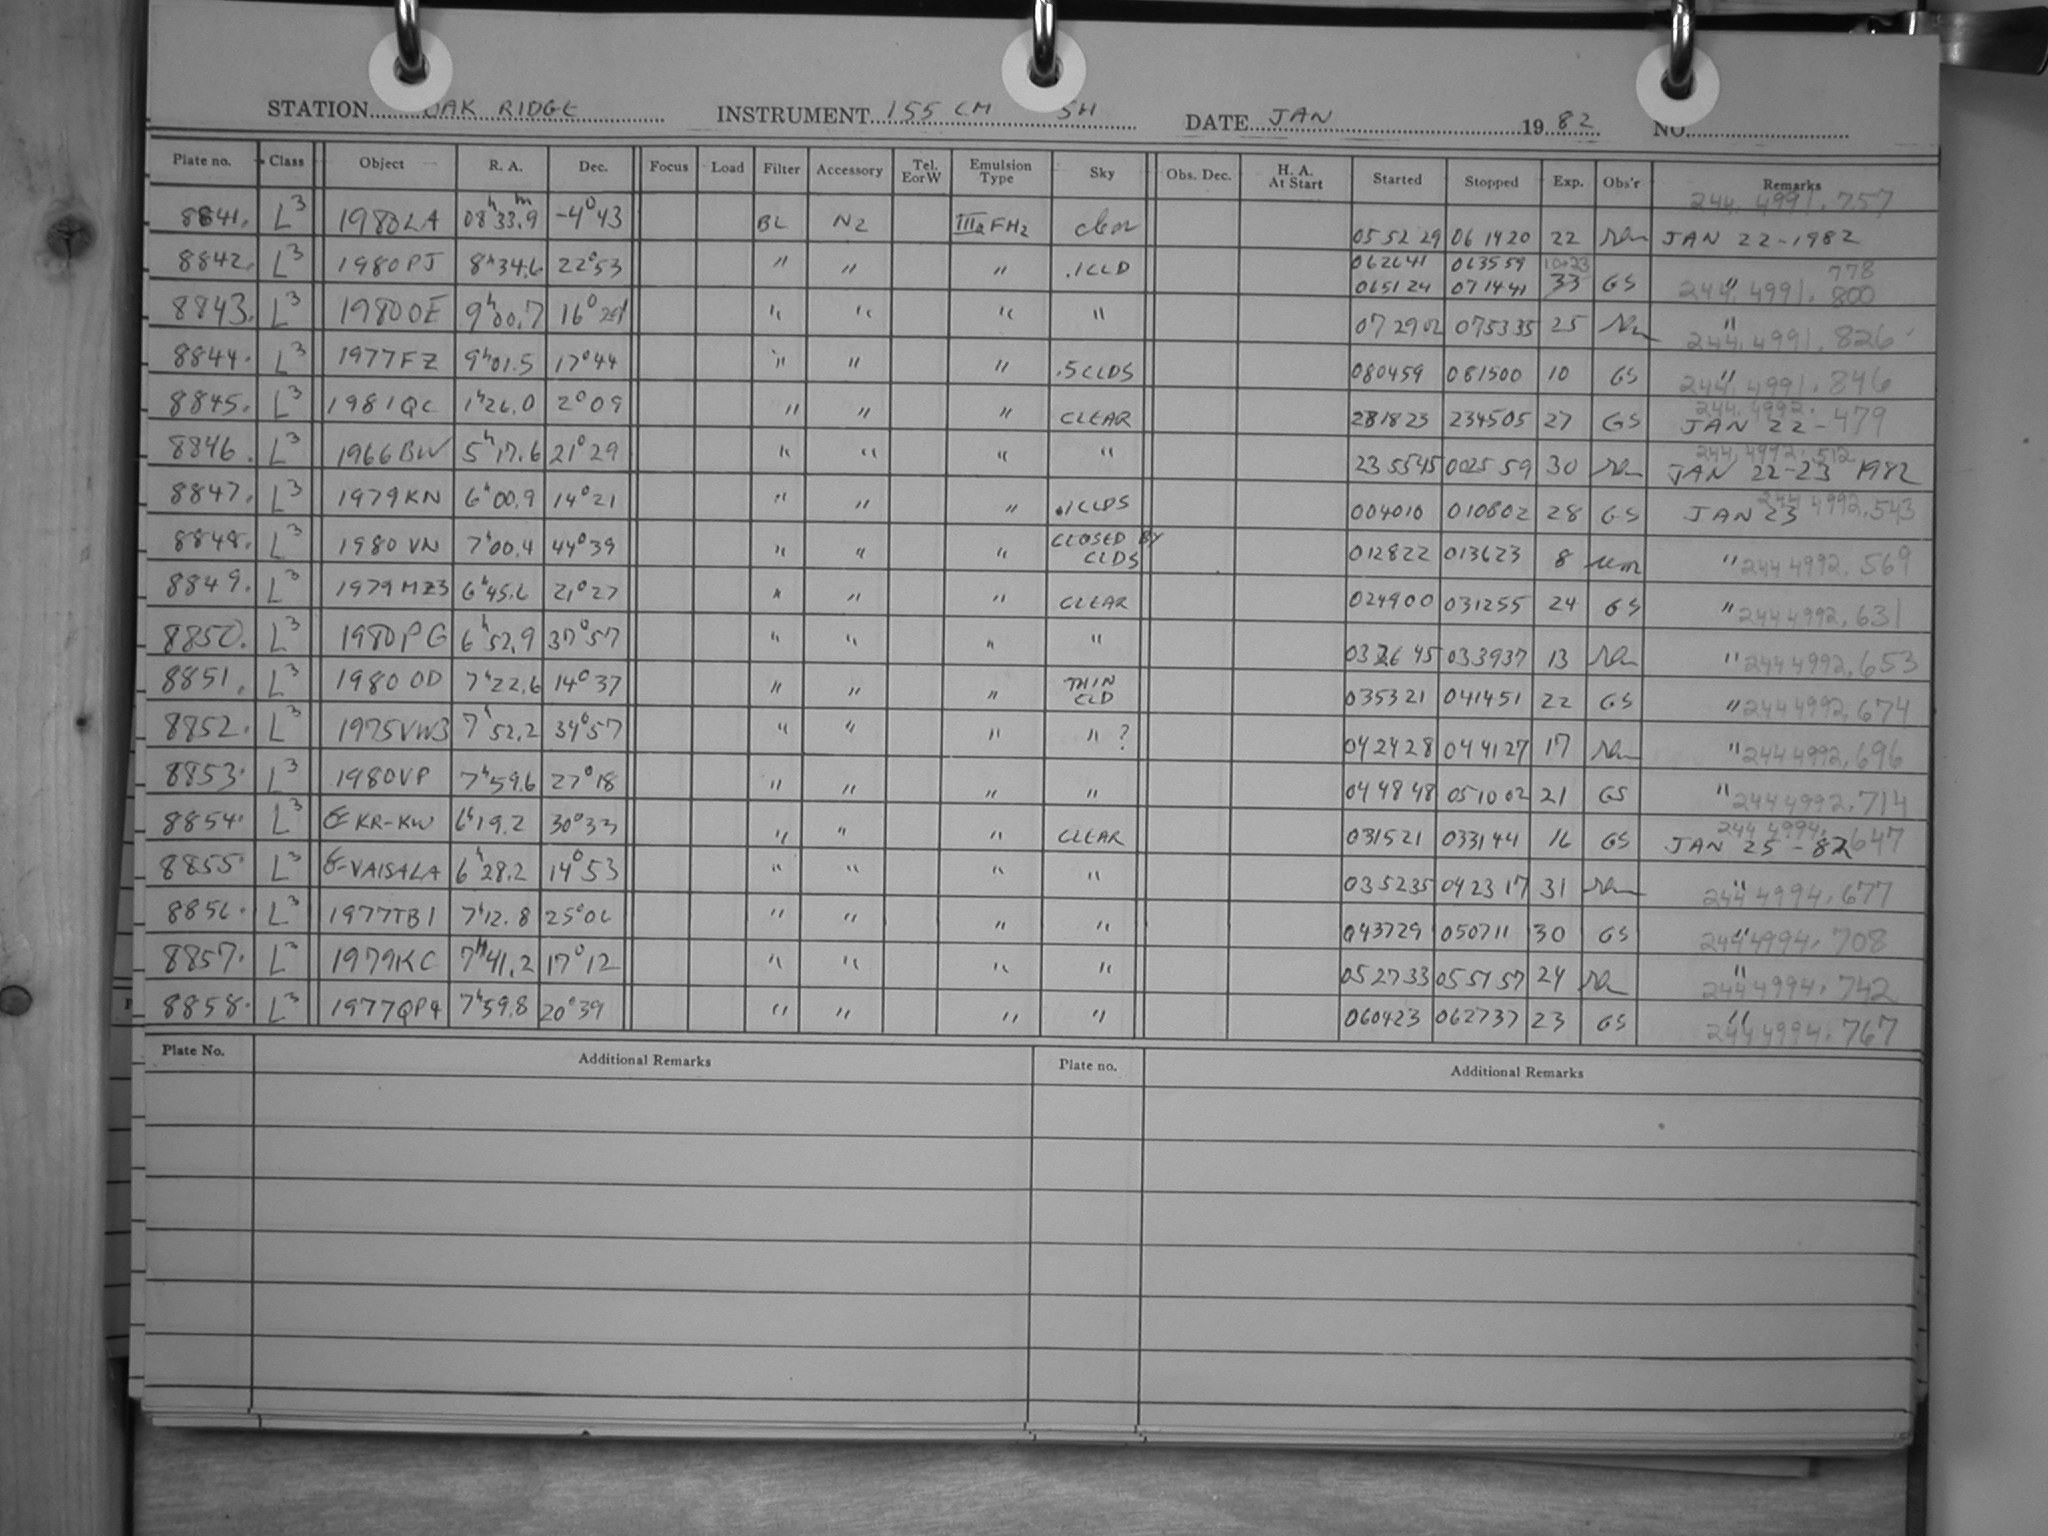 STATION OAK RIDGE INSTRUMENT 155 CM SH DATE JAN 1982 NO.
Plate no. Class Object R. A. Dec. Focus Load Filter Accessory Tel. EorW Emulsion Type Sky Obs. Dec. H. A. At Start Started Stopped Exp. Obs'r Remarks
8841. L3 1980LA 08h33.9m -4°43 BL N2 IIIaFH2 clear 055229 061420 22 244.4991.757 JAN 22-1982
8842. L3 1980PJ 8h34.6 22°53 " " " .1CLD 062641 063559 10+23
065124 071441 33 GS " 244.4991. 778 800
8843. L3 1980OE 9h00.7 16° " " " " 072902 075335 25 " 244.4991.826
8844. L3 1977FZ 9h01.5 17°44 " " " .5CLDS 080459 081500 10 GS " 244.4991.846
8845. L3 1981QC 1h26.0 2°09 " " " CLEAR 231823 234505 27 GS JAN 22- 244.4992.479
8846. L3 1966BW 5h17.6 21°29 " " " " 235545 002559 30 244.4992.512 JAN 22-23 1982
8847. L3 1979KN 6h00.9 14°21 " " " .1CLDS 004010 010802 28 GS JAN 23 244 4992.543
8848. L3 1980VN 7h00.4 44°39 " " " CLOSED BY CLDS 012822 013623 8 " 244 4992.569
8849. L3 1979MZ3 6h45.6 21°27 " " " CLEAR 024900 031255 24 GS " 244 4992.631
8850. L3 1980PG 6h52.9 37°57 " " " " 032645 033937 13 " 244 4992.653
8851. L3 1980OD 7h22.6 14°37 " " " THIN CLD 035321 041451 22 GS " 244 4992.674
8852. L3 1975VW3 7h52.2 34°57 " " " " ? 042428 044127 17 " 244 4992.696
8853. L3 1980VP 7h59.6 27°18 " " " " 044848 051002 21 GS " 244 4992.714
8854. L3 KR-KW 6h19.2 30°33 " " " CLEAR 031521 033144 16 GS JAN 25-82 244 4994.647
8855. L3 VAISALA 6h28.2 14°53 " " " " 035235 042317 31 " 244 4994.677
8856. L3 1977TB1 7h12.8 25°06 " " " " 043729 050711 30 GS " 244 4994.708
8857. L3 1979KC 7h41.2 17°12 " " " " 052733 055157 24 " 244 4994.742
8858. L3 1977QP4 7h59.8 20°39 " " " " 060423 062737 23 GS " 244 4994.767
Plate No. Additional Remarks Plate no. Additional Remarks